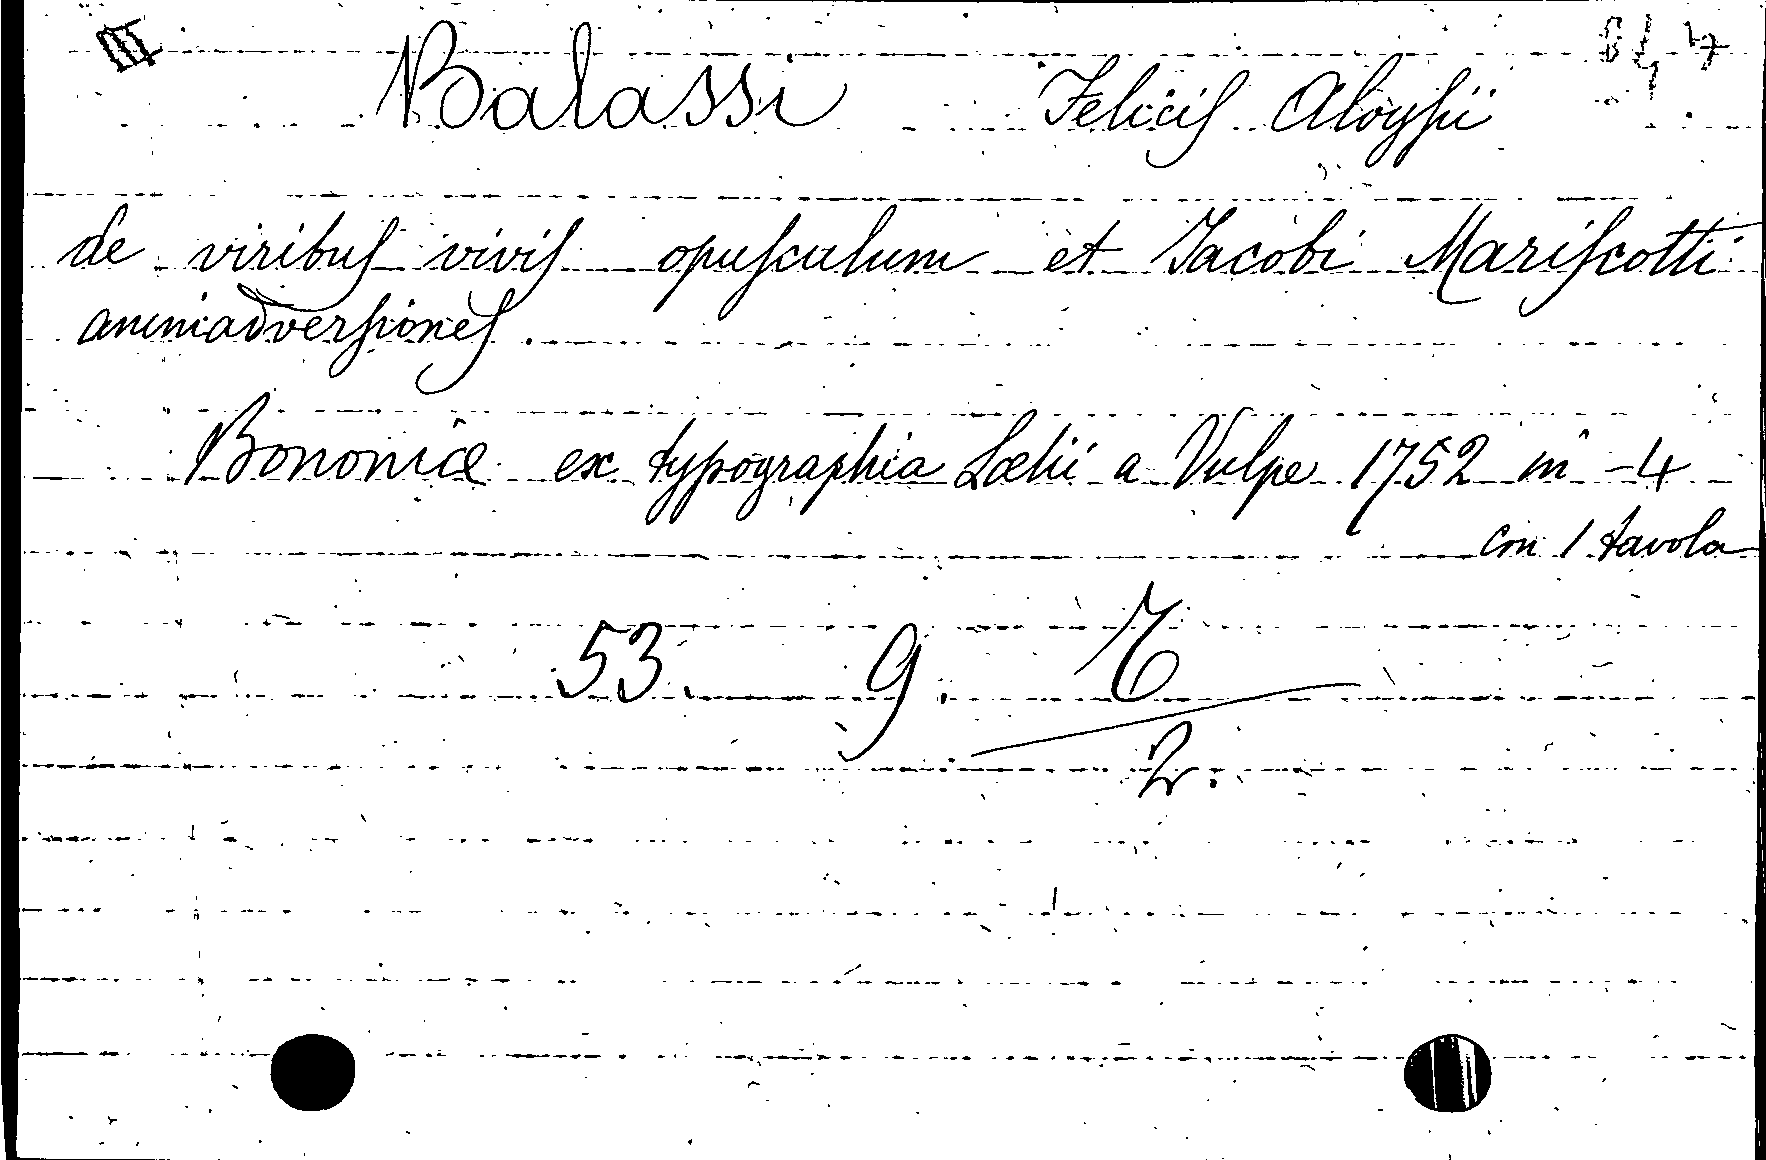 III
Balassi Felicis Aloysii
de viribus vivis opusculum et Jacobi Mariscotti
animadversiones.
Bononiæ ex typographia Lælii a Vulpe 1752 in-4
con 1 tavola
53. 9. 7
2.